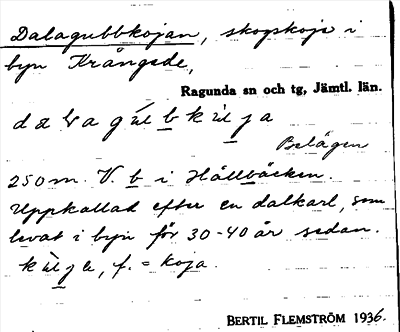 Dalagubbkojan, skogskoja i
byn Krångede,
Ragunda sn och tg, Jämtl. län.
Belägen
250 m. V. b i Hällbäcken.
Uppkallad efter en dalkarl, som
levat i byn för 30-40 år sedan.
f. = koja.
BERTIL FLEMSTRÖM 1936.